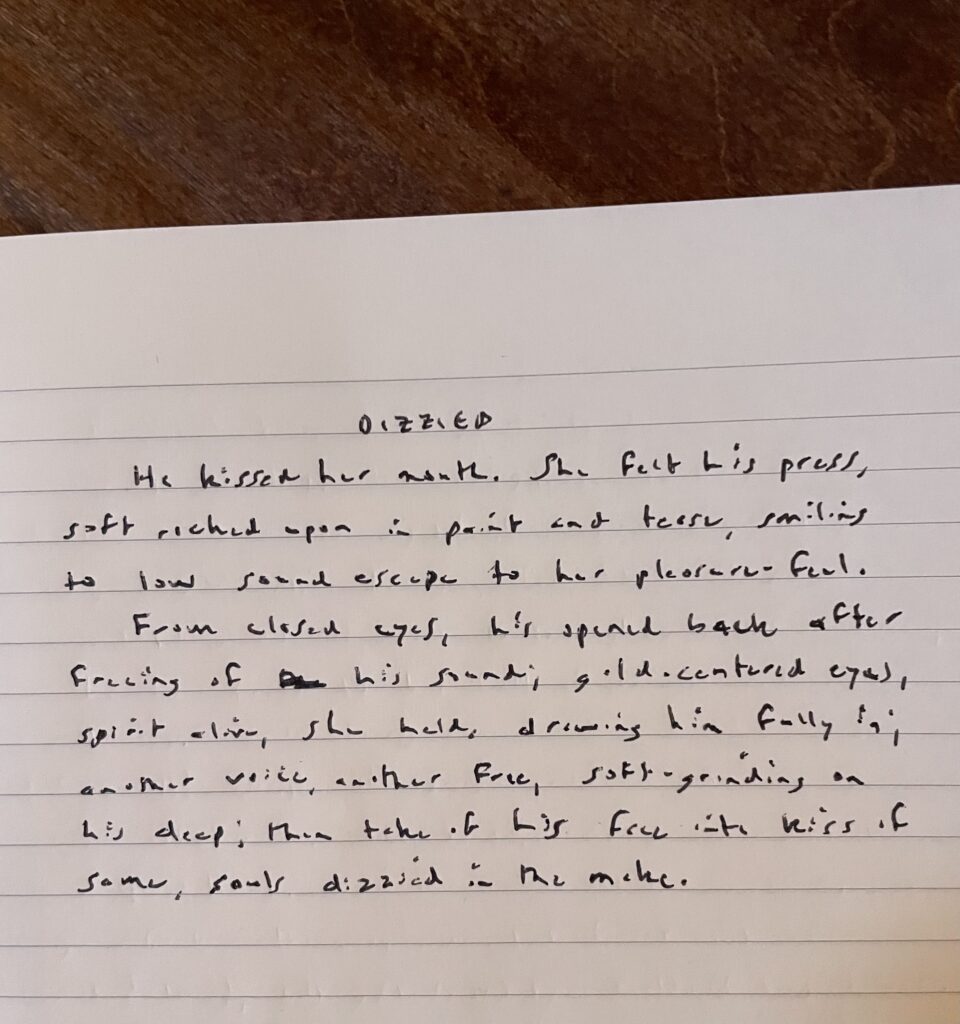 DIZZIED
He kissed her mouth. She felt his press,
soft roched upon in point and tease, smiling
to low sound escape to her pleasure-feel.
From closed eyes, his opened back after
freeing of his sound; gold-centered eyes,
spirit alive, she held, drawing him fully in;
another voice, another free, soft-grinding on
his deep; then take of his free into kiss of
same, souls dizzied in the make.